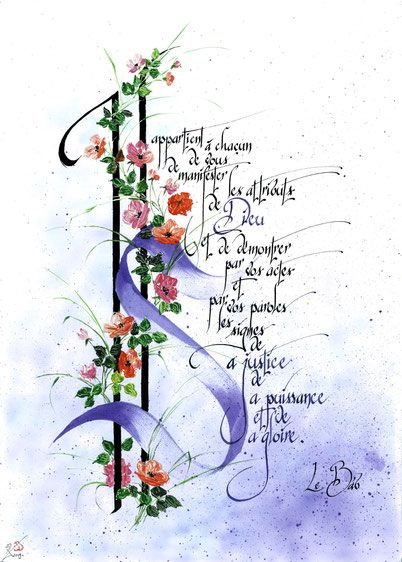 Il appartient à chacun
de vous
de
manifester
les attributs
de
Dieu
et de démontrer
par
vos actes
et
par
vos paroles
les
signes
de
Sa justice
de
Sa puissance
et de
Sa gloire.
Le Báb